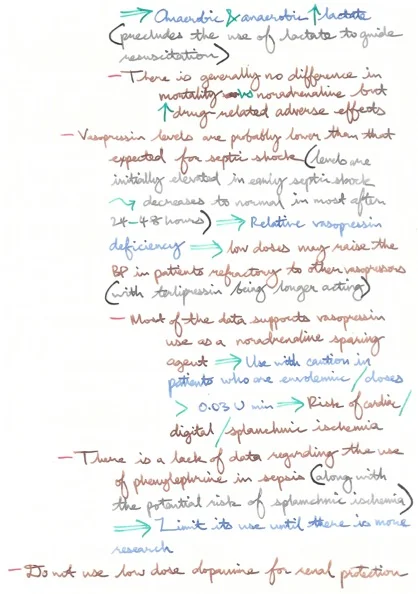 ⇒ Anaerobic & anaerobic ↑ lactate
(precludes the use of lactate to guide
resuscitation)
– There is generally no difference in
mortality vs noradrenaline but
↑ drug-related adverse effects
– Vasopressin levels are probably lower than that
expected for septic shock (levels are
initially elevated in early septic shock
→ decreases to normal in most after
24–48 hours) ⇒ Relative vasopressin
deficiency ⇒ low doses may raise the
BP in patients refractory to other vasopressors
(with terlipressin being longer acting)
– Most of the data supports vasopressin
use as a noradrenaline sparing
agent ⇒ Use with caution in
patients who are euvolemic / doses
> 0.03 U min ⇒ Risk of cardiac /
digital / splanchnic ischemia
– There is a lack of data regarding the use
of phenylephrine in sepsis (along with
the potential risk of splanchnic ischemia)
⇒ Limit its use until there is more
research
– Do not use low dose dopamine for renal protection